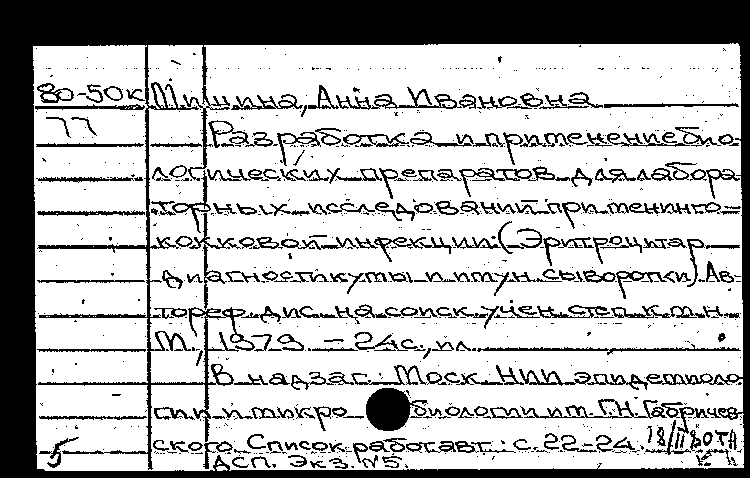 80-50к Мишина, Анна Ивановна
77 Разработка и применение био-
логических препаратов для лабора-
торных исследований при менинго-
кокковой инфекции. (Эритроцитар.
диагностикумы и имун. сыворотки) Ав-
тореф. дис. на соиск. учен. степ. к.м.н.
М., 1979 - 24с., ил.
В надзаг.: Моск. НИИ эпидемиоло-
гии и микробиологии им. Г.Н. Габричев-
ского. Список работ авт.: с. 22-24. 18/II 80
5 ДСП. Экз. №5.